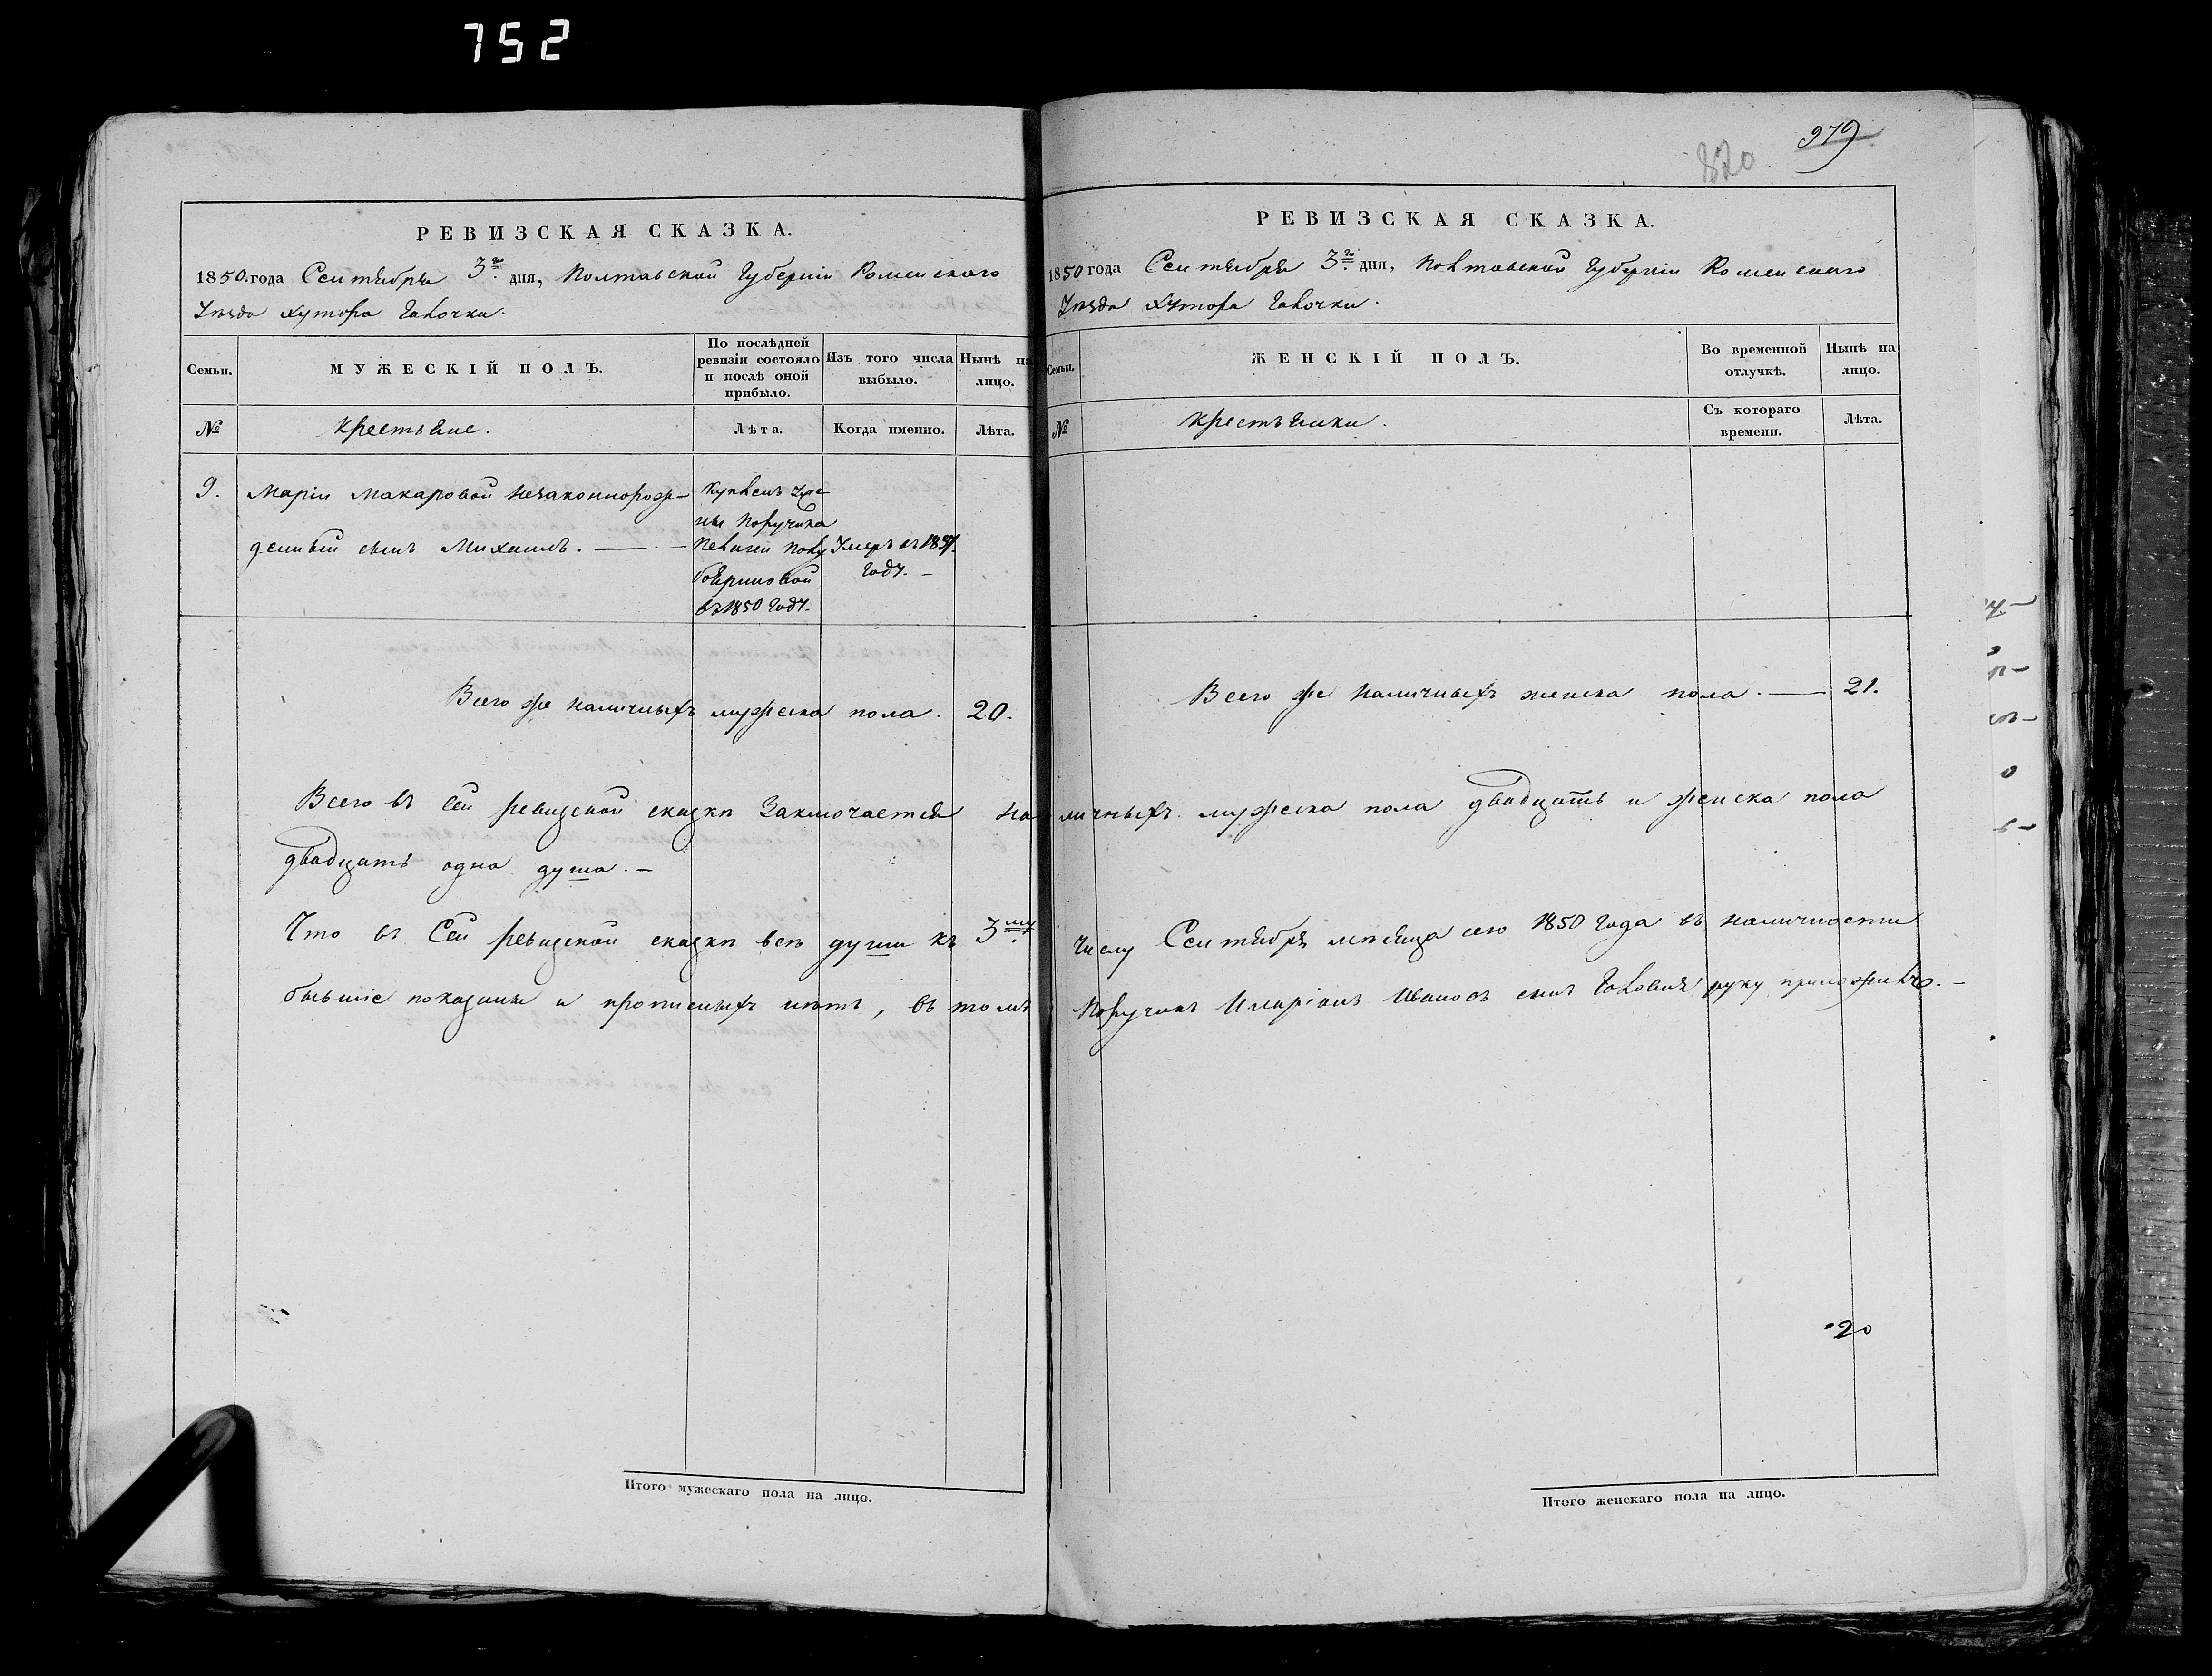 752
979
820
РЕВИЗСКАЯ СКАЗКА.
1850.года Сентября 3го дня, Полтавской Губерніи Роменскаго
Уѣзда хутора Галочки.
Семьи.
МУЖЕСКІЙ ПОЛЪ.
По послѣдней
ревизіи состояло
и послѣ оной
прибыло.
Изъ того числа
выбыло.
Нынѣ на
лицо.
№
Крестьяне.
Лѣта.
Когда именно.
Лѣта.
9.
Маріи Макаровой незаконнорож-
денный сынъ Михаилъ. —
Купленъ
Поручика
въ 1850 году.
Умеръ въ
году. —
Всего же наличныхъ мужеска пола. 20.
РЕВИЗСКАЯ СКАЗКА.
1850 года Сентября 3го дня, Полтавской Губерніи Роменскаго
Уѣзда хутора Галочки.
Семьи.
ЖЕНСКІЙ ПОЛЪ.
Во временной
отлучкѣ.
Нынѣ на
лицо.
№
Крестьянки.
Съ котораго
времени.
Лѣта.
Всего же наличныхъ женска пола. — 21.
Всего въ сей ревизской сказкѣ заключается наличныхъ мужеска пола двадцать и женска пола
двадцать одна душа. —
Что въ сей ревизской сказкѣ всѣ души къ 3му числу Сентября мѣсяца сего 1850 года въ наличности
бывшіе показаны и прописныхъ нѣтъ, въ томъ Поручикъ Иларіонъ Ивановъ сынъ руку приложилъ. —
20
Итого мужескаго пола на лицо.
Итого женскаго пола на лицо.